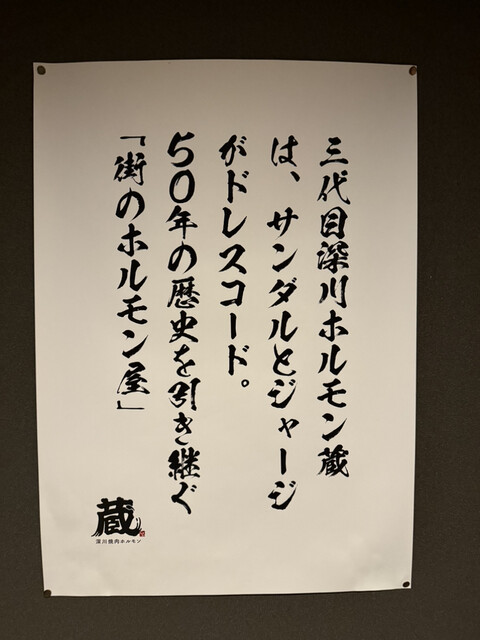 三代目深川ホルモン蔵
は、サンダルとジャージ
がドレスコード。
50年の歴史を引き継ぐ
「街のホルモン屋」
蔵
深川焼肉ホルモン